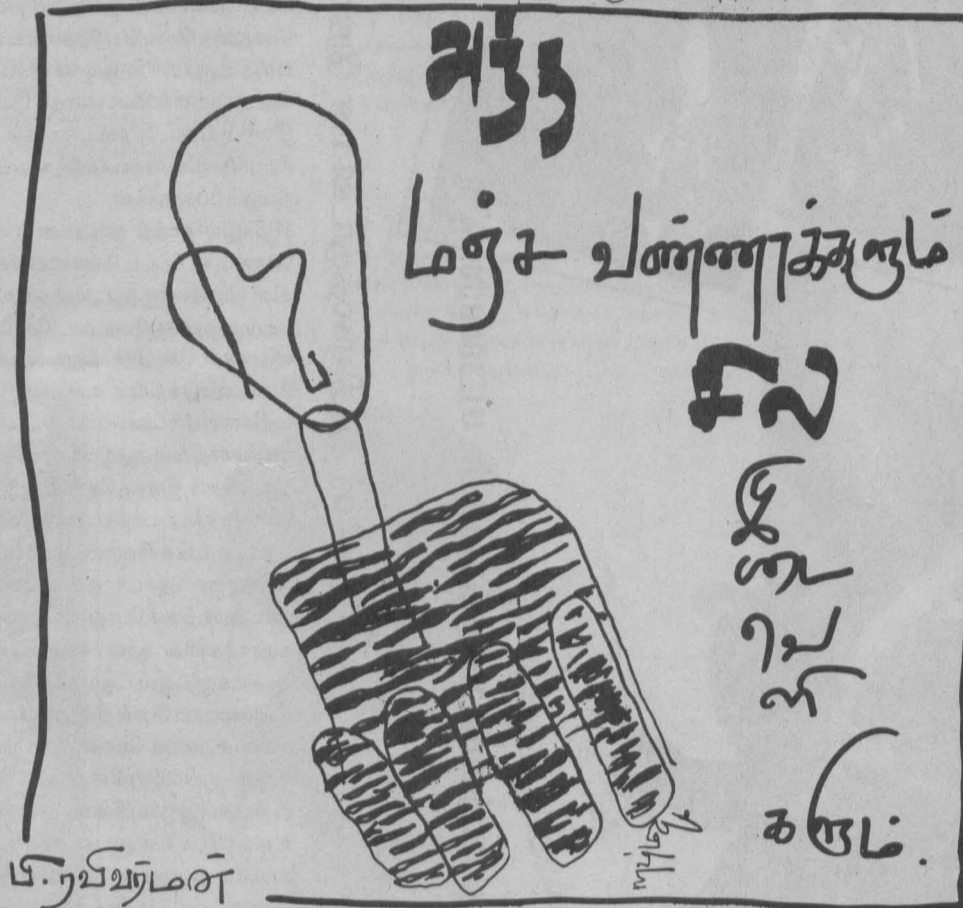 அந்த
மஞ்ச வண்ணாக்களும்
சில
இ
டை
வெ
ளி
களும்.
பி.ரவிவர்மன்